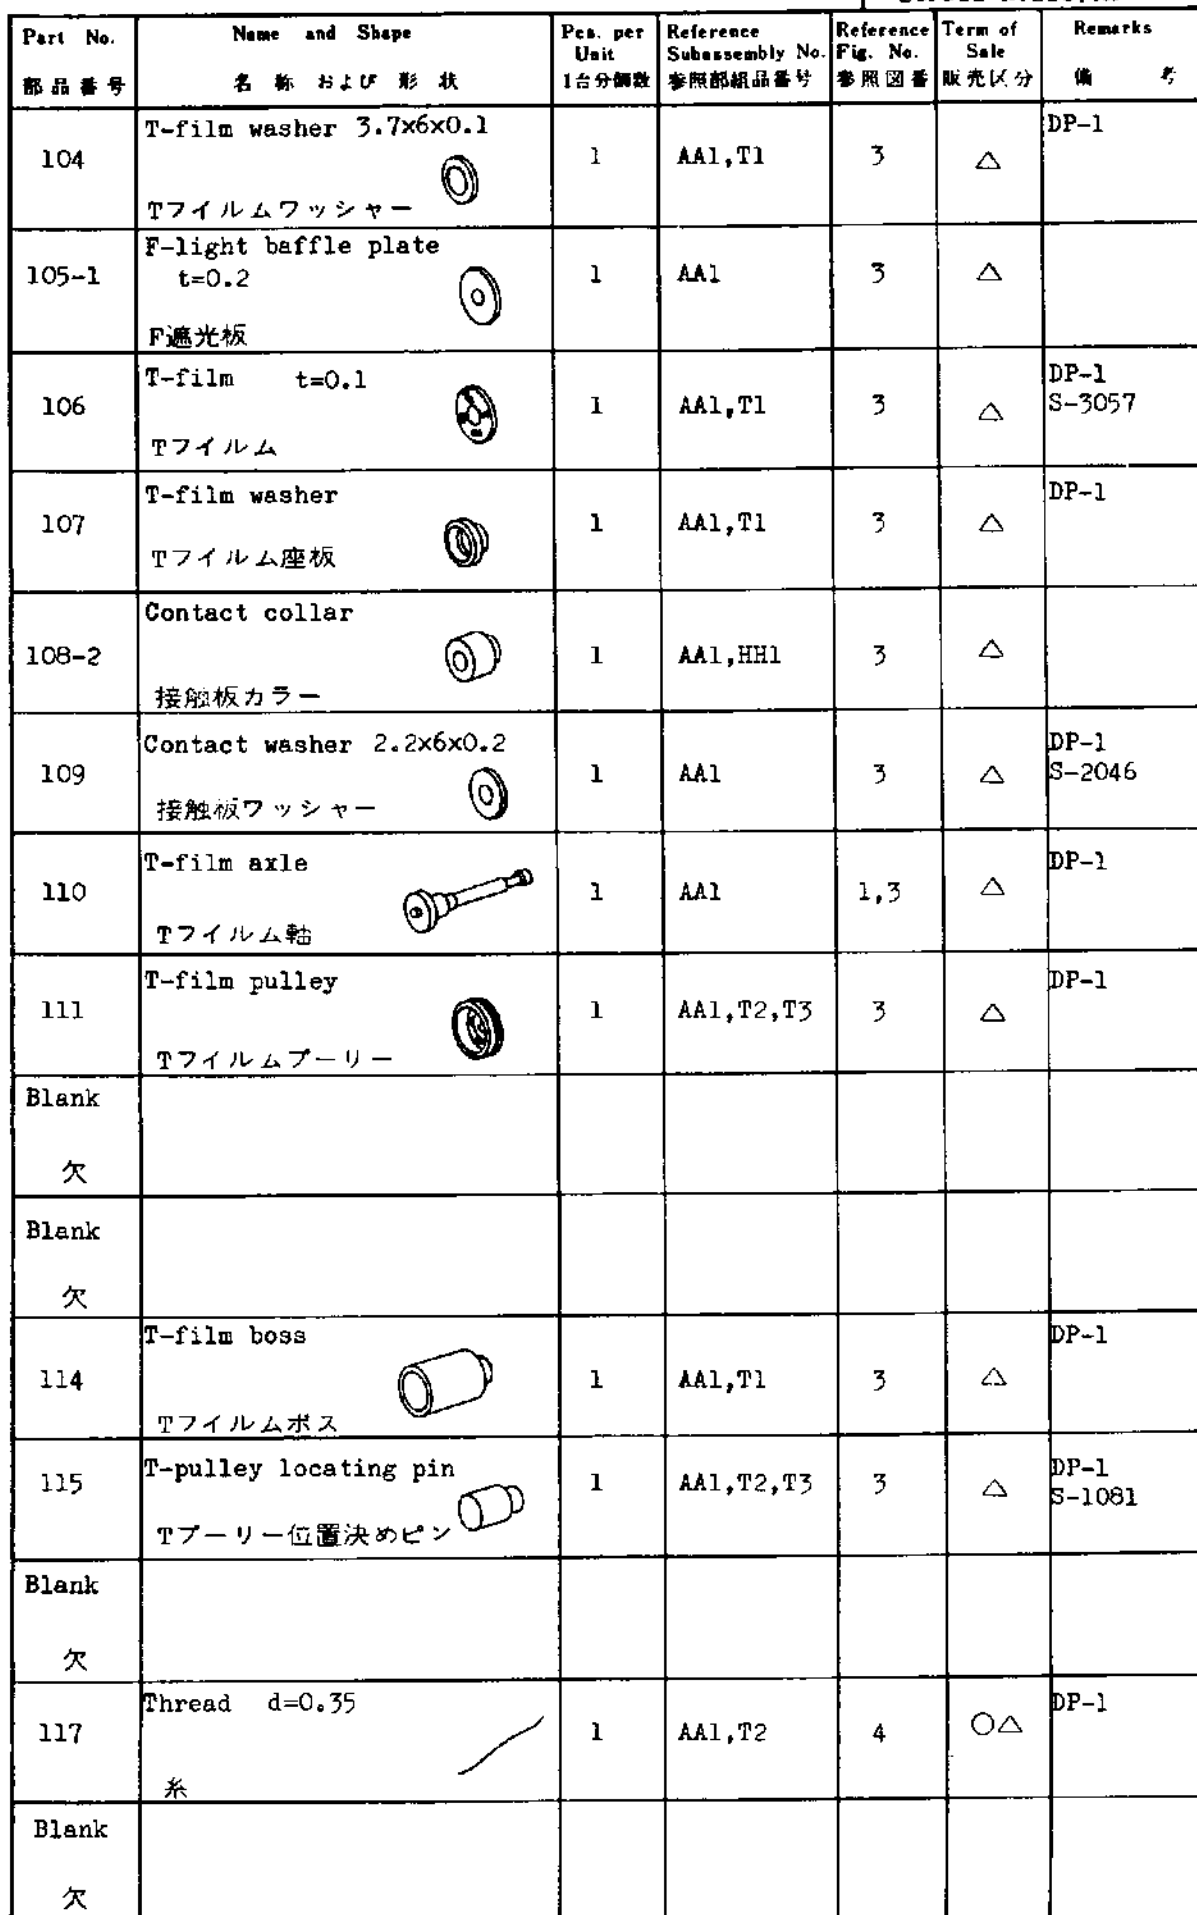 Part No.
部品番号
Name and Shape
名称および形状
Pcs. per
Unit
1台分個数
Reference
Subassembly No.
参照部組品番号
Reference
Fig. No.
参照図番
Term of
Sale
販売区分
Remarks
備考
104
T-film washer 3.7x6x0.1
Tフイルムワッシャー
1
AA1,T1
3
△
DP-1
105-1
F-light baffle plate
t=0.2
F遮光板
1
AA1
3
△
106
T-film t=0.1
Tフイルム
1
AA1,T1
3
△
DP-1
S-3057
107
T-film washer
Tフイルム座板
1
AA1,T1
3
△
DP-1
108-2
Contact collar
接触板カラー
1
AA1,HH1
3
△
109
Contact washer 2.2x6x0.2
接触板ワッシャー
1
AA1
3
△
DP-1
S-2046
110
T-film axle
Tフイルム軸
1
AA1
1,3
△
DP-1
111
T-film pulley
Tフイルムプーリー
1
AA1,T2,T3
3
△
DP-1
Blank
欠
Blank
欠
114
T-film boss
Tフイルムボス
1
AA1,T1
3
△
DP-1
115
T-pulley locating pin
Tプーリー位置決めピン
1
AA1,T2,T3
3
△
DP-1
S-1081
Blank
欠
117
Thread d=0.35
糸
1
AA1,T2
4
○△
DP-1
Blank
欠